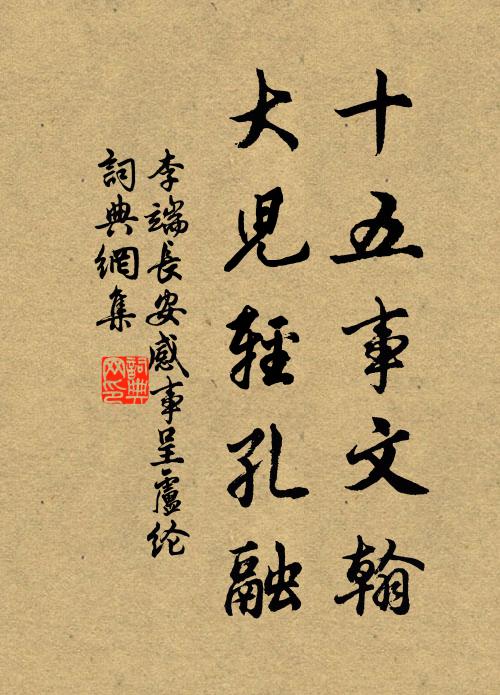 十五事文翰
大児輕孔融
李端長安感事呈盧纶
詞典網集
詞典網印